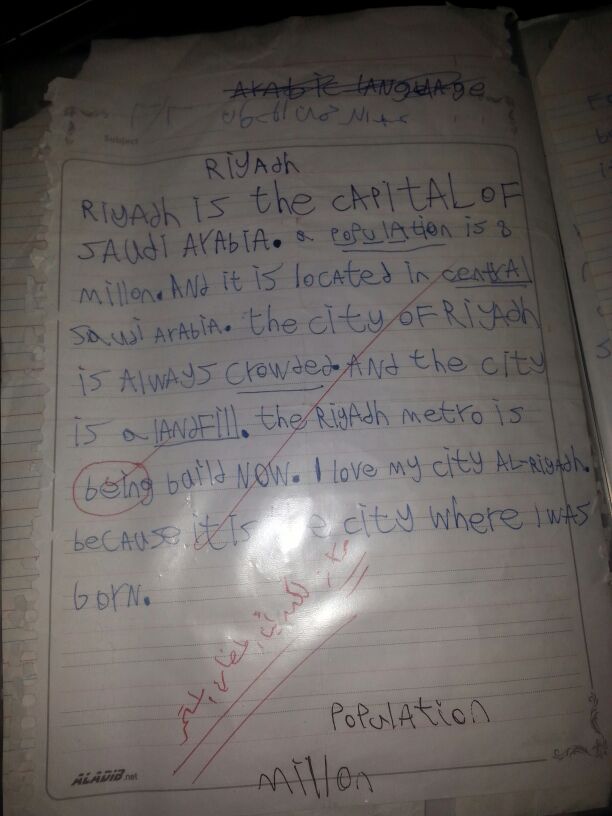 Arabic language
Subject
Riyadh
Riyadh is the capital of
Saudi Arabia. a population is 8
millon. And it is located in central
Saudi Arabia. the city of Riyadh
is always crowded. And the city
is a landfill. the Riyadh metro is
being baild Now. I love my city Al-Riyadh.
because it is city where I was
born.
Population
millon
ALADIB.net